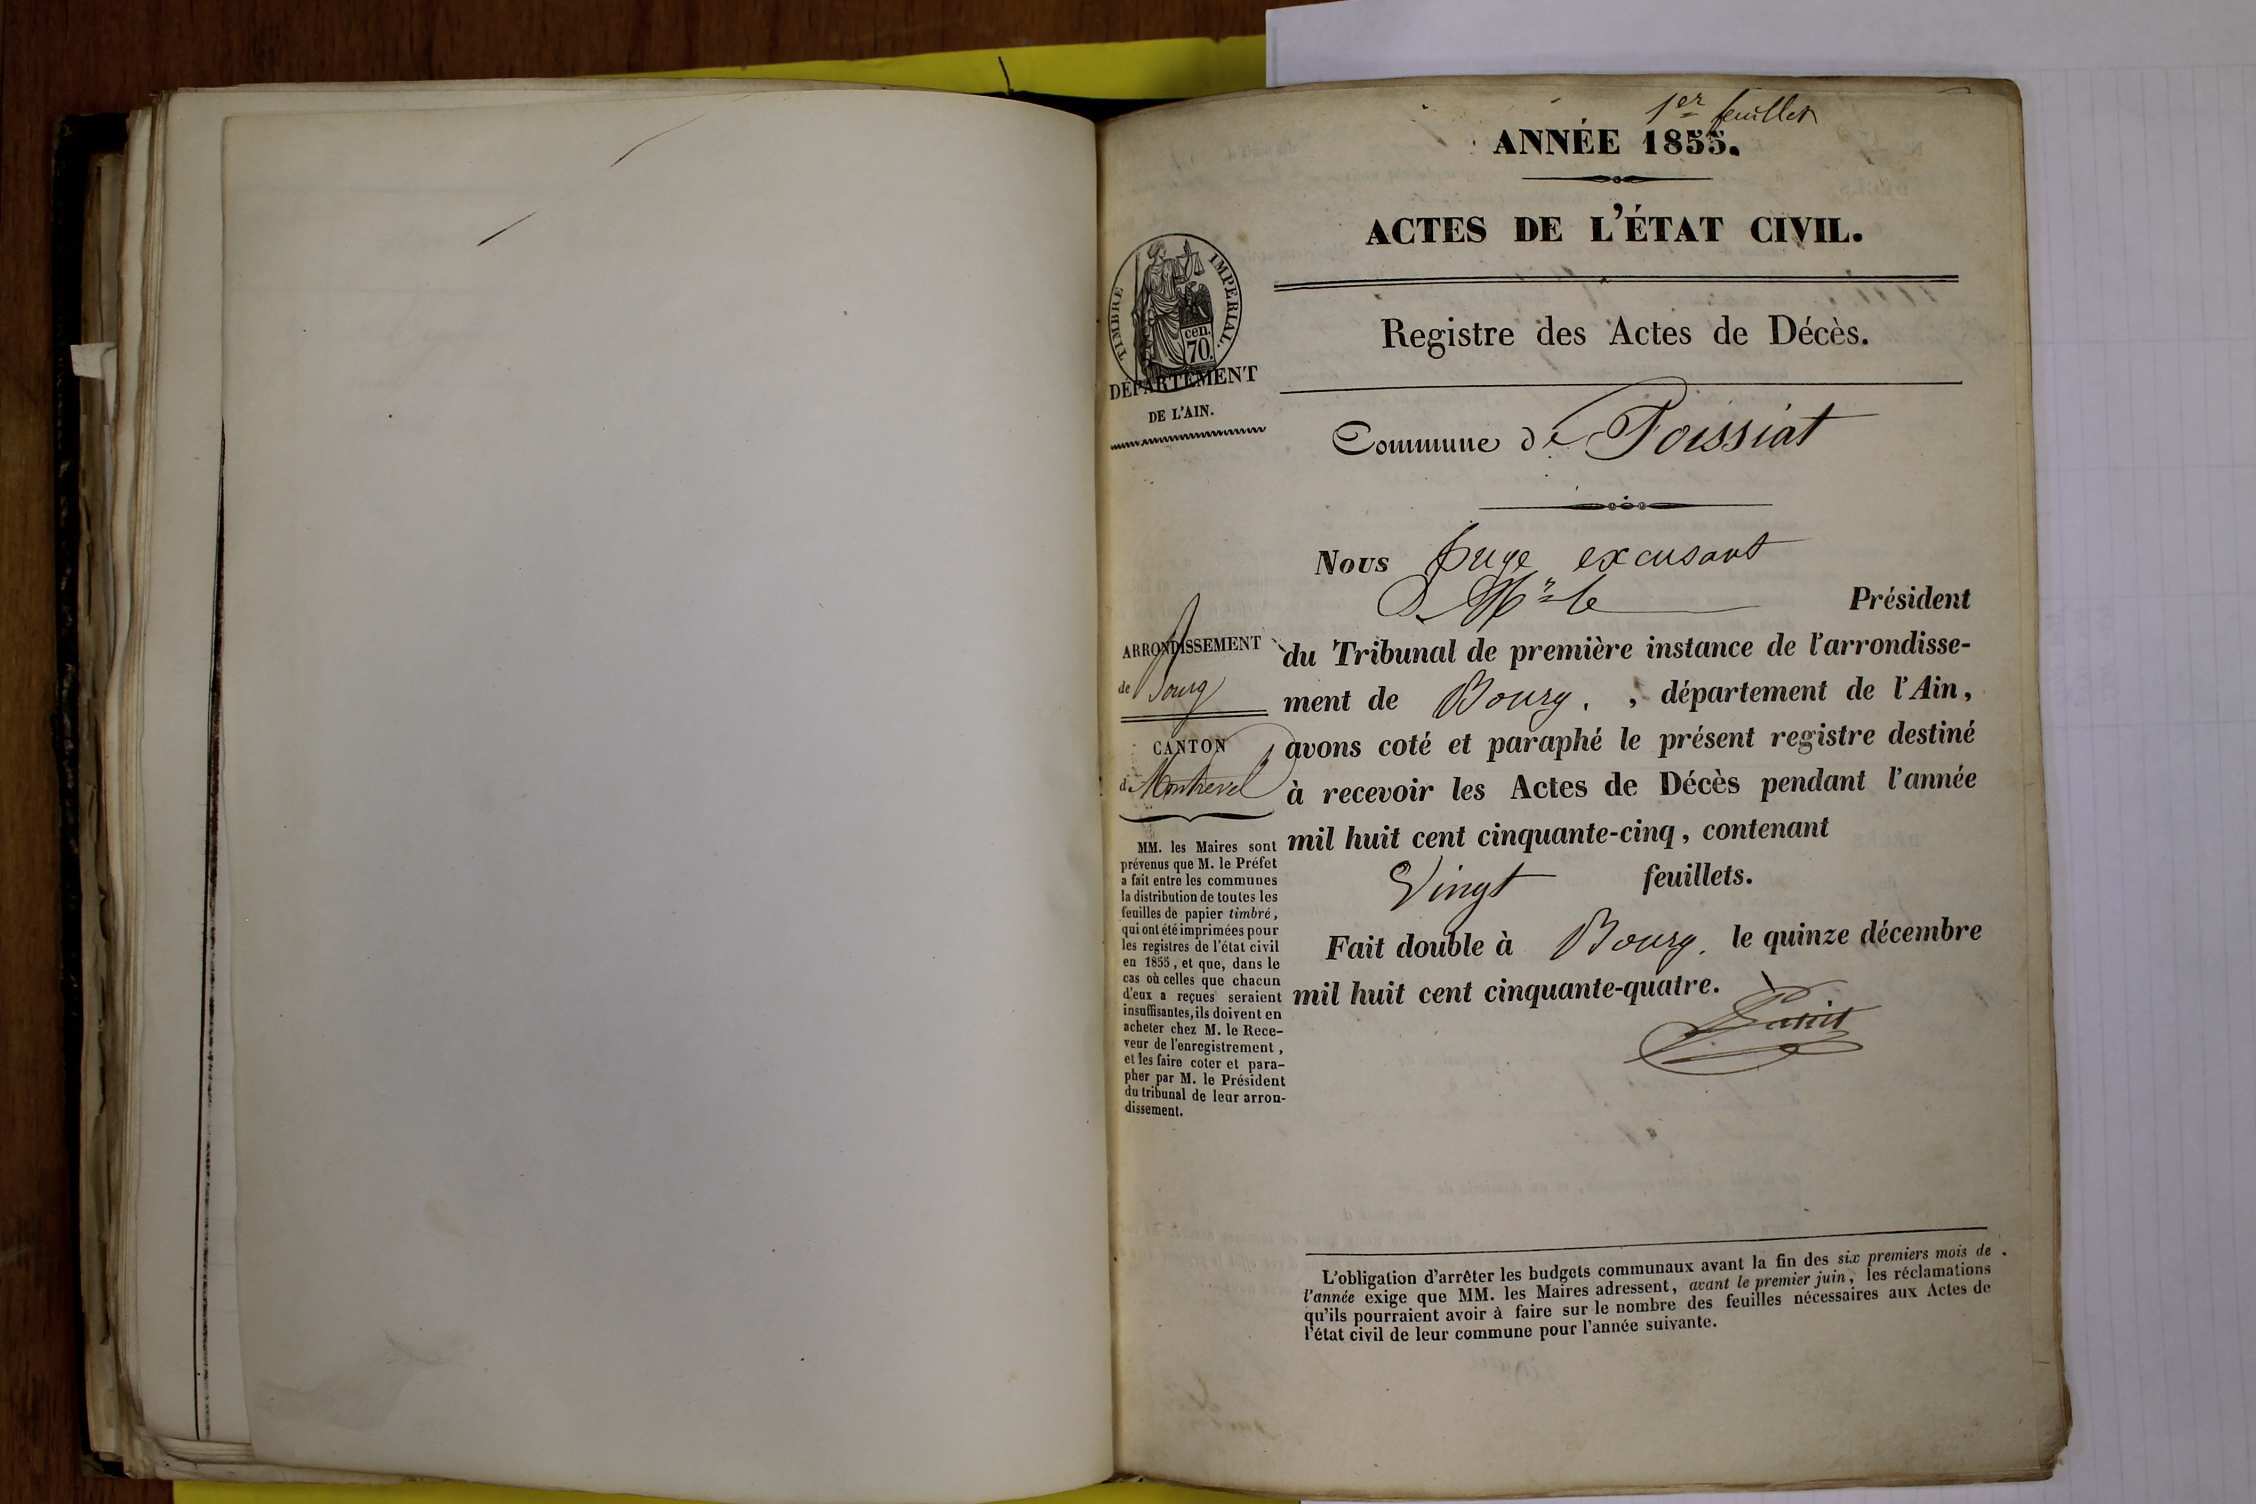 1er feuillet
ANNÉE 1855.
ACTES DE L'ÉTAT CIVIL.
TIMBRE IMPÉRIAL.
cen.
70.
DÉPARTEMENT
DE L'AIN.
Registre des Actes de Décès.
Commune de Foissiat
Nous Juge excusant
Mr le Président
du Tribunal de première instance de l'arrondisse-
ment de Bourg. , département de l'Ain,
avons coté et paraphé le présent registre destiné
à recevoir les Actes de Décès pendant l'année
mil huit cent cinquante-cinq, contenant
Vingt feuillets.
Fait double à Bourg. le quinze décembre
mil huit cent cinquante-quatre.
ARRONDISSEMENT
de Bourg
CANTON
de Montrevel
MM. les Maires sont
prévenus que M. le Préfet
a fait entre les communes
la distribution de toutes les
feuilles de papier timbré,
qui ont été imprimées pour
les registres de l'état civil
en 1855, et que, dans le
cas où celles que chacun
d'eux a reçues seraient
insuffisantes, ils doivent en
acheter chez M. le Rece-
veur de l'enregistrement,
et les faire coter et para-
pher par M. le Président
du tribunal de leur arron-
dissement.
L'obligation d'arrêter les budgets communaux avant la fin des six premiers mois de
l'année exige que MM. les Maires adressent, avant le premier juin, les réclamations
qu'ils pourraient avoir à faire sur le nombre des feuilles nécessaires aux Actes de
l'état civil de leur commune pour l'année suivante.